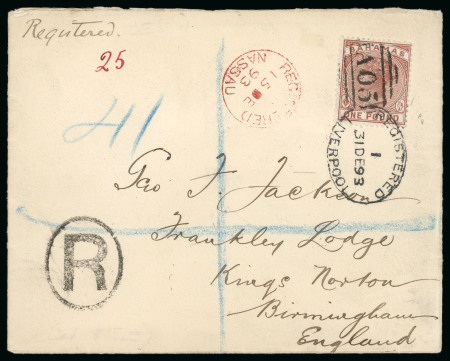 Registered.
25
BAHAMAS
A05
ONE POUND
REGISTERED
93
NASSAU
41
REGISTERED
1
31DE93
LIVERPOOL
Geo F. Jackson
Frankley Lodge
Kings Norton
Birmingham
England
R